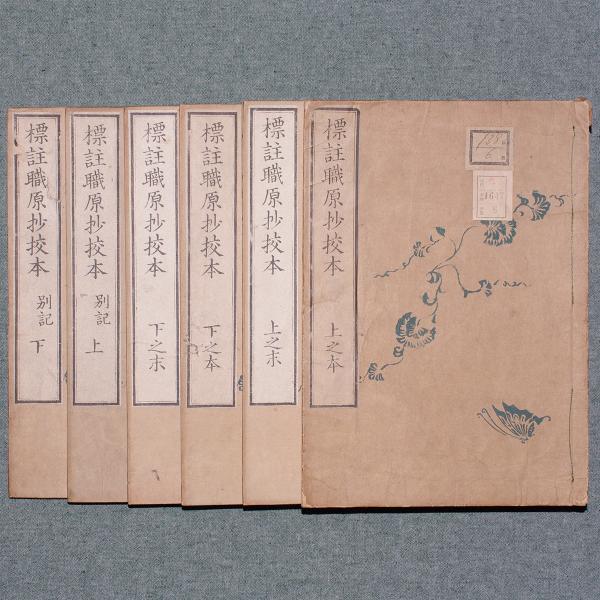 標註職原抄挍本 上之本
標註職原抄挍本 上之末
標註職原抄挍本 下之本
標註職原抄挍本 下之末
標註職原抄挍本 別記 上
標註職原抄挍本 別記 下